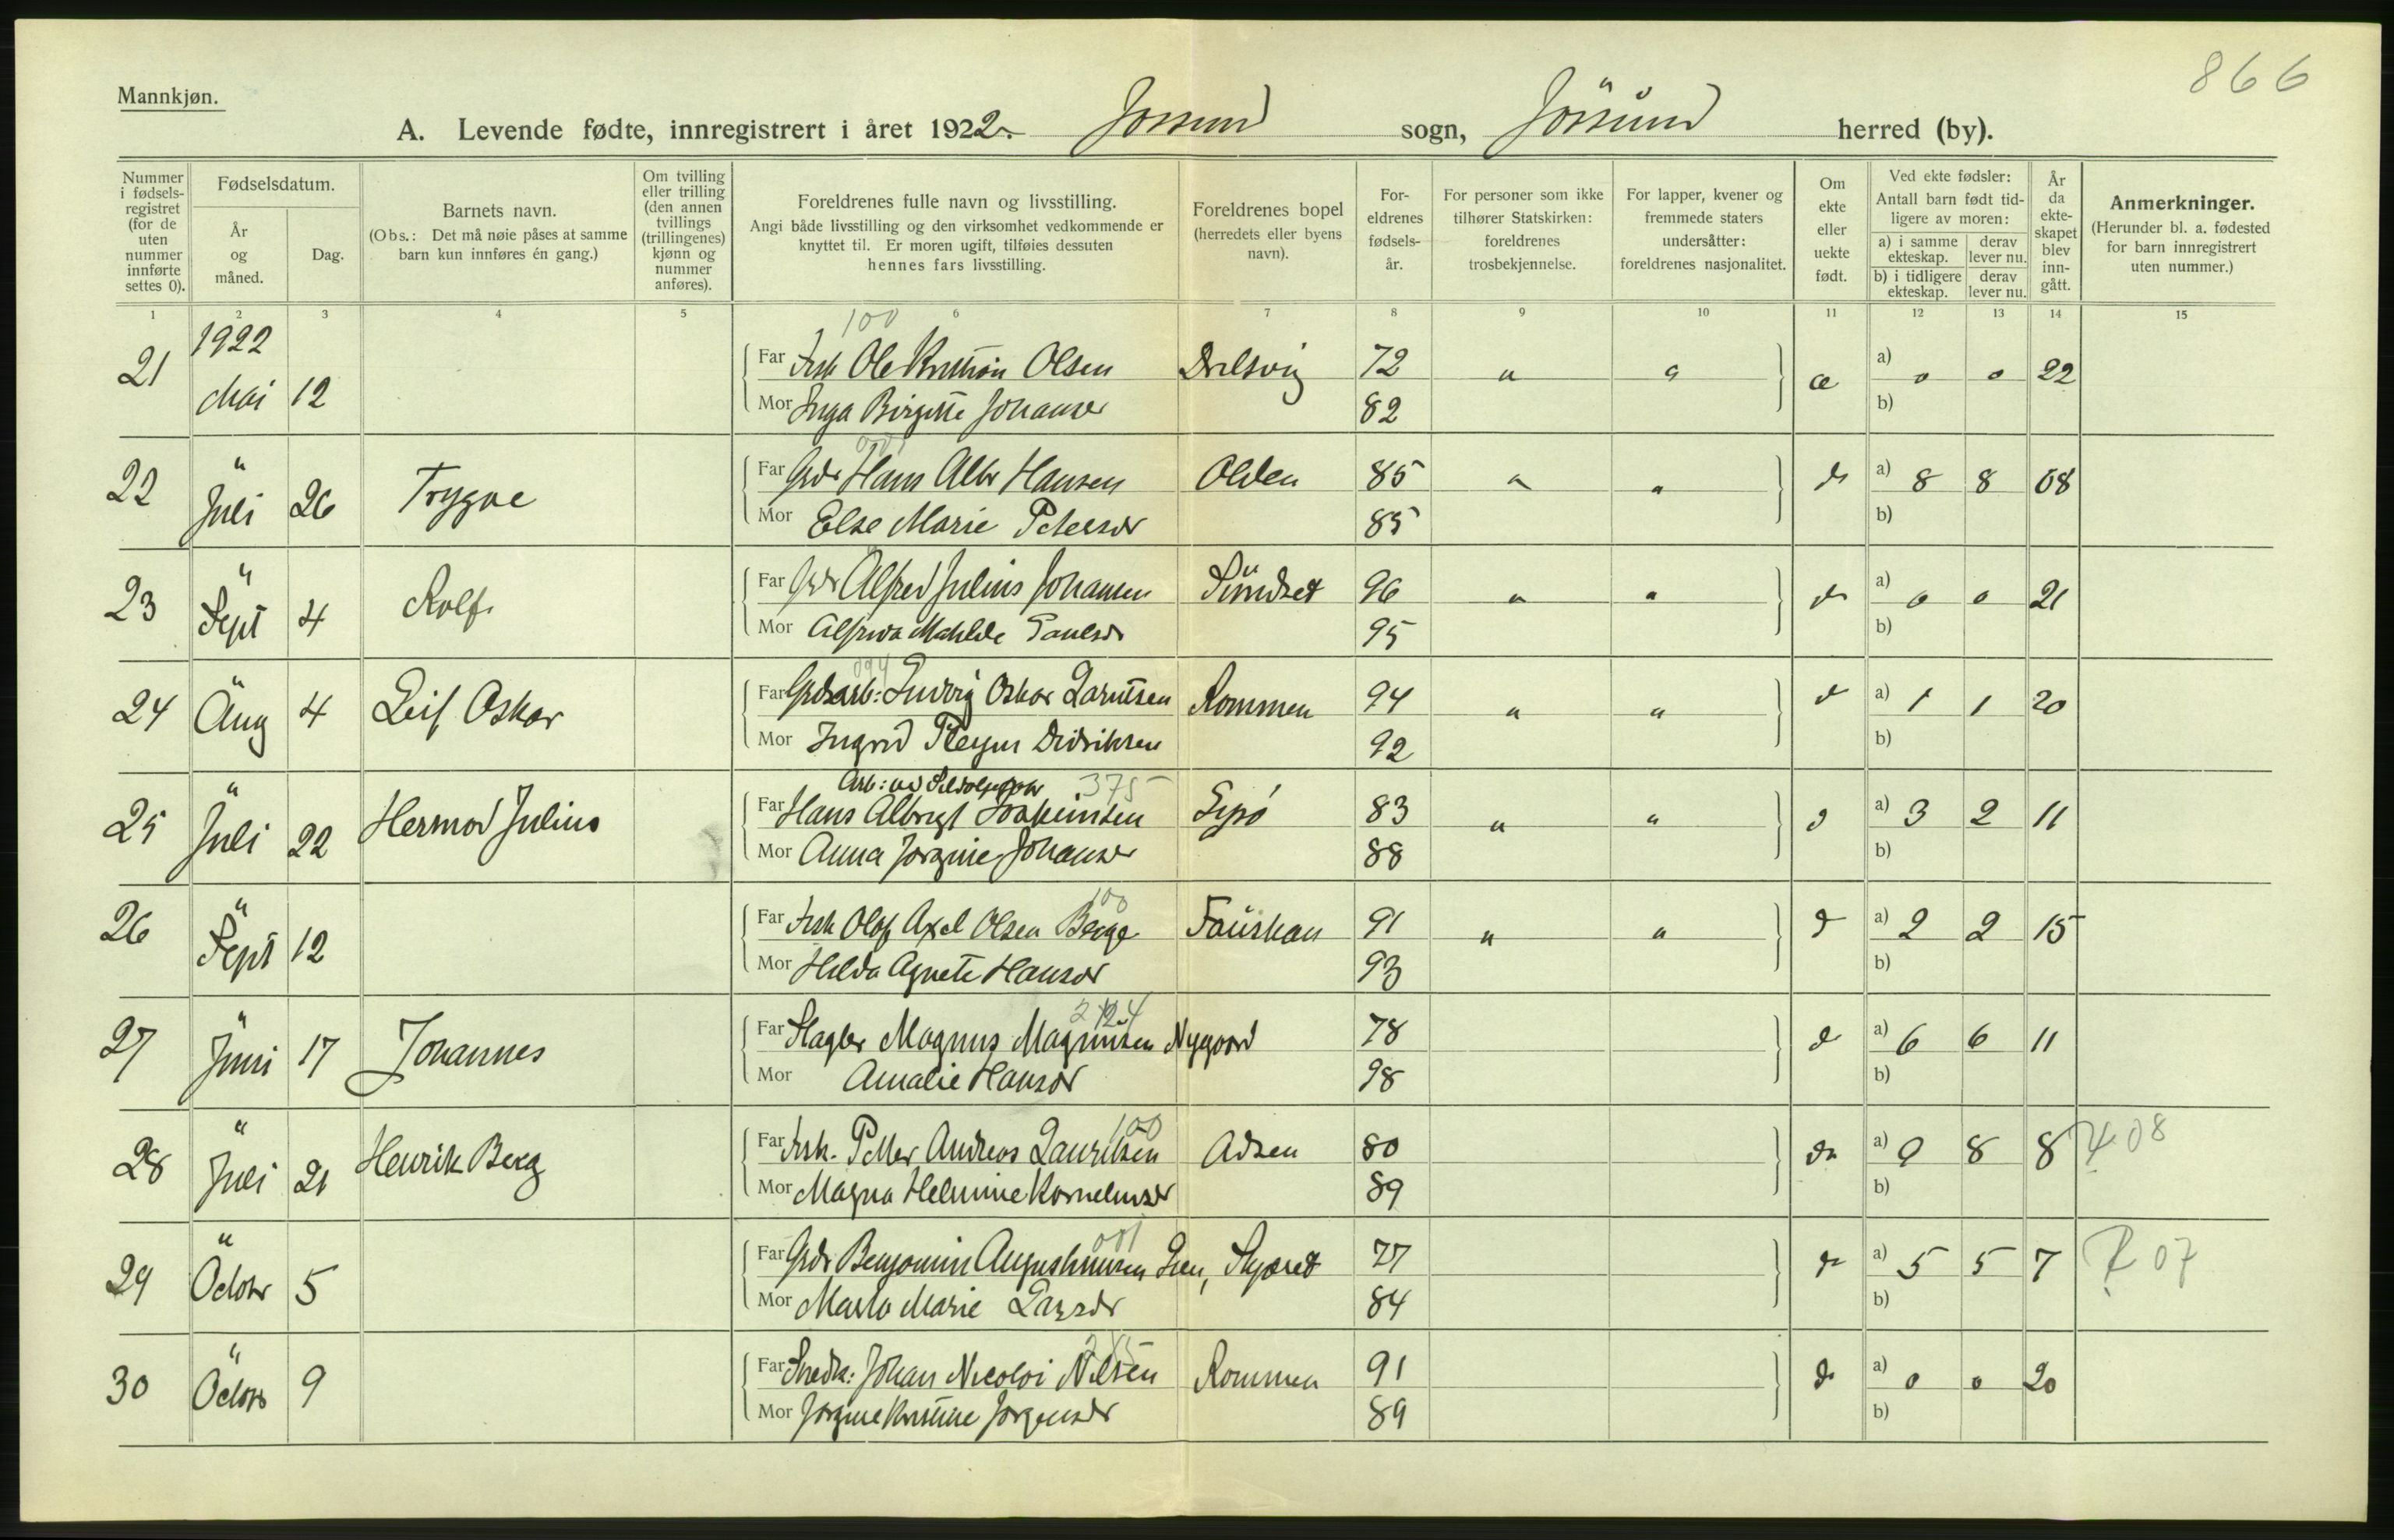 866
Mannkjøn.
A. Levende fødte, innregistrert i året 1922. Jossund sogn, Jössund herred (by).
Nummer i fødsels-registret (for de uten nummer innførte settes 0).
Fødselsdatum.
År og måned.
Dag.
Barnets navn.
(Obs.: Det må nøie påses at samme barn kun innføres én gang.)
Om tvilling eller trilling (den annen tvillings (trillingenes) kjønn og nummer anføres).
Foreldrenes fulle navn og livsstilling.
Angi både livsstilling og den virksomhet vedkommende er knyttet til. Er moren ugift, tilføies dessuten hennes fars livsstilling.
Foreldrenes bopel (herredets eller byens navn).
For-eldrenes fødsels-år.
For personer som ikke tilhører Statskirken: foreldrenes trosbekjennelse.
For lapper, kvener og fremmede staters undersåtter: foreldrenes nasjonalitet.
Om ekte eller uekte født.
Ved ekte fødsler:
Antall barn født tid-ligere av moren:
a) i samme ekteskap. derav lever nu.
b) i tidligere ekteskap. derav lever nu.
År da ekte-skapet blev inn-gått.
Anmerkninger.
(Herunder bl. a. fødested for barn innregistrert uten nummer.)
1 2 3 4 5 6 7 8 9 10 11 12 13 14 15
100
21 1922 Mai 12 Far Fisk Ole Kristian Olsen 72 " " æ a) 0 0 22
Mor Inga Birgitte Johansdr 82 b)
22 " Juli 26 Trygve Far Grdr Hans Albr Hansen Olden 85 " " d a) 8 8 08
Mor Else Marie Petersdr 85 b)
23 " Sept 4 Rolf Far Grdr Alfred Julius Johansen Sundset 96 " " d a) 0 0 21
Mor Alfrida Mathilde Paulsdr 95 b)
24 Aug 4 Leif Oskar Far Grdsarb: Ludvig Oskar Lauritsen Rommen 94 " " d a) 1 1 20
Mor Ingrid Didriksen 92 b)
375
25 " Juli 22 Hermod Julius Far Hans Albrigt Joakimsen Lysö 83 " " d a) 3 2 11
Mor Anna Jorgine Johansdr 88 b)
100
26 " Sept 12 Far Fisk Olaf Axel Olsen Berge Fauskan 91 " " d a) 2 2 15
Mor Hilda Agnete Hansdr 93 b)
27 " Juni 17 Johannes Far Magnus Magnussen Nygaard 78 d a) 6 6 11
Mor Amalie Hansdr 98 b)
100
28 " Juli 21 Henrik Berg Far Fisk. Petter Andreas Lauritsen Adsen 80 do a) 9 8 8 08
Mor Magna Helmine Korneliusdr 89 b)
001
29 " Octobr 5 Far Grdr Benjamin Augustinussen Lien, 77 d a) 5 5 7 ? 07
Mor Marta Marie Larsdr 84 b)
30 " Octobr 9 Far Snedk: Johan Nicolai Nilsen Rommen 91 d a) 0 0 20
Mor Jorgine Kristine Jörgensdr 89 b)